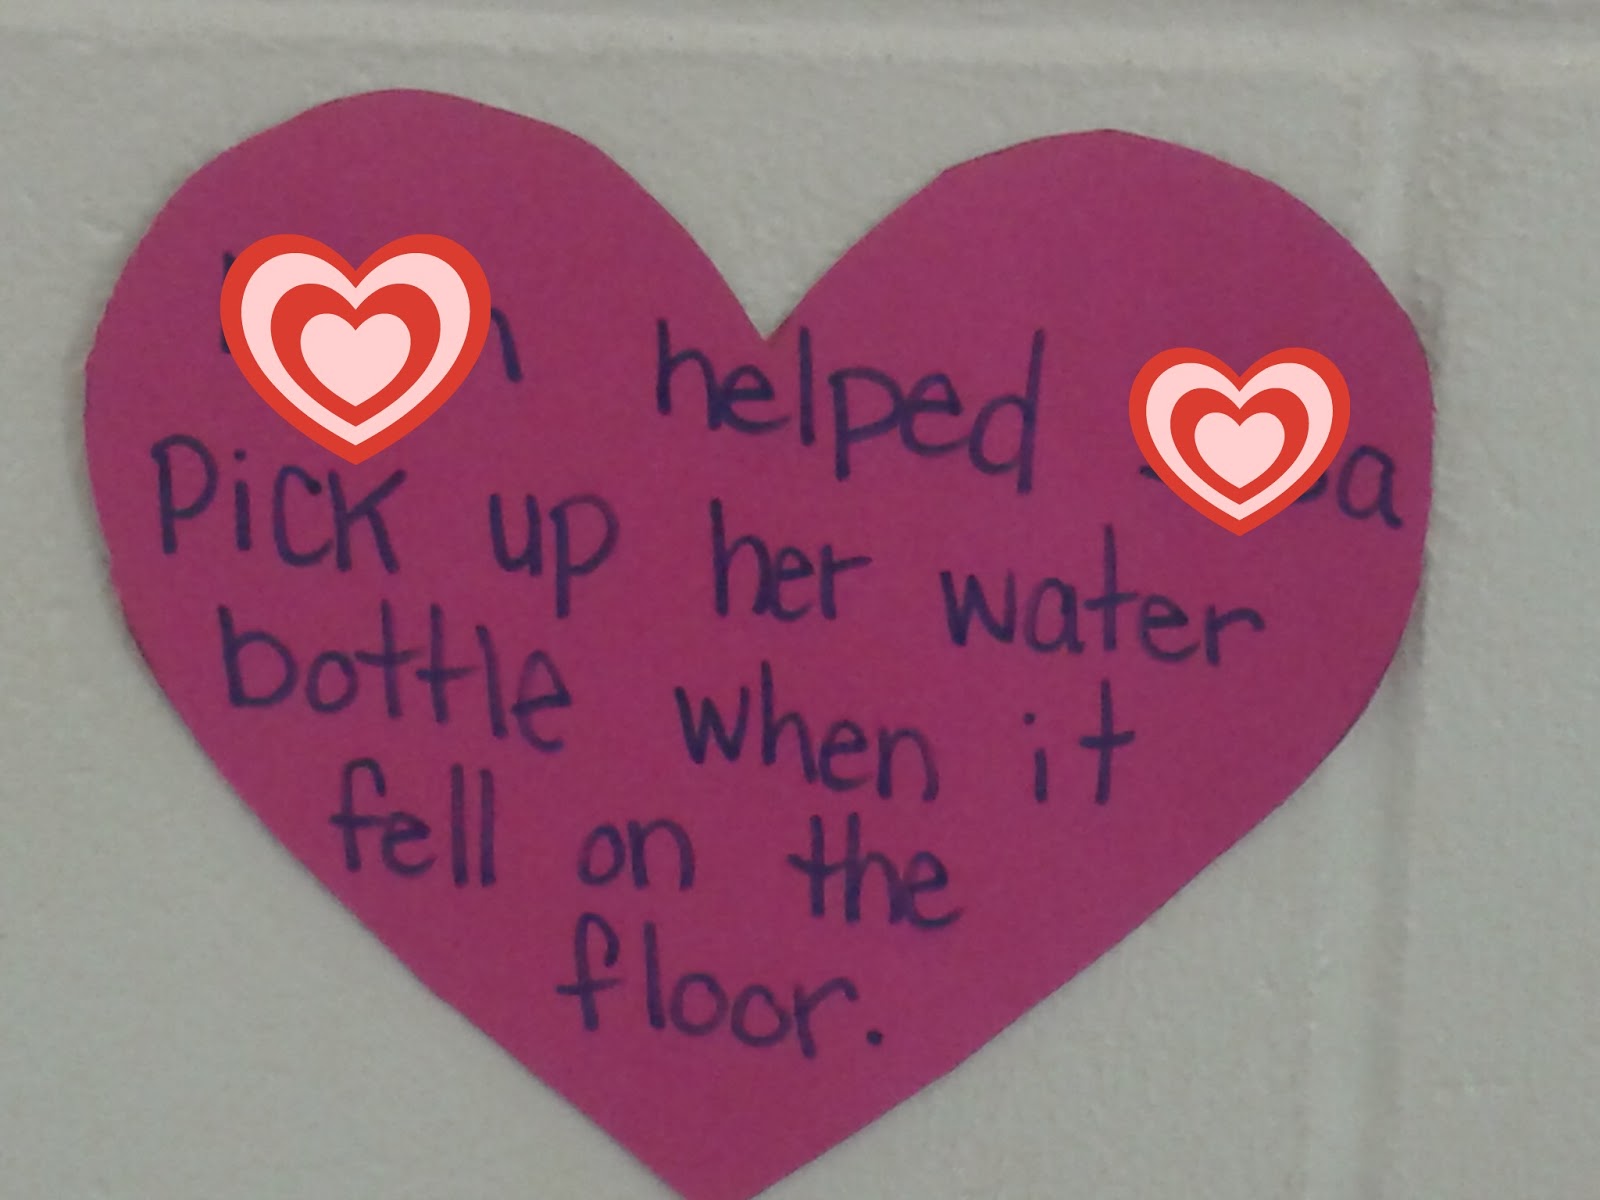 helped
Pick up her water
bottle when it
fell on the
floor.